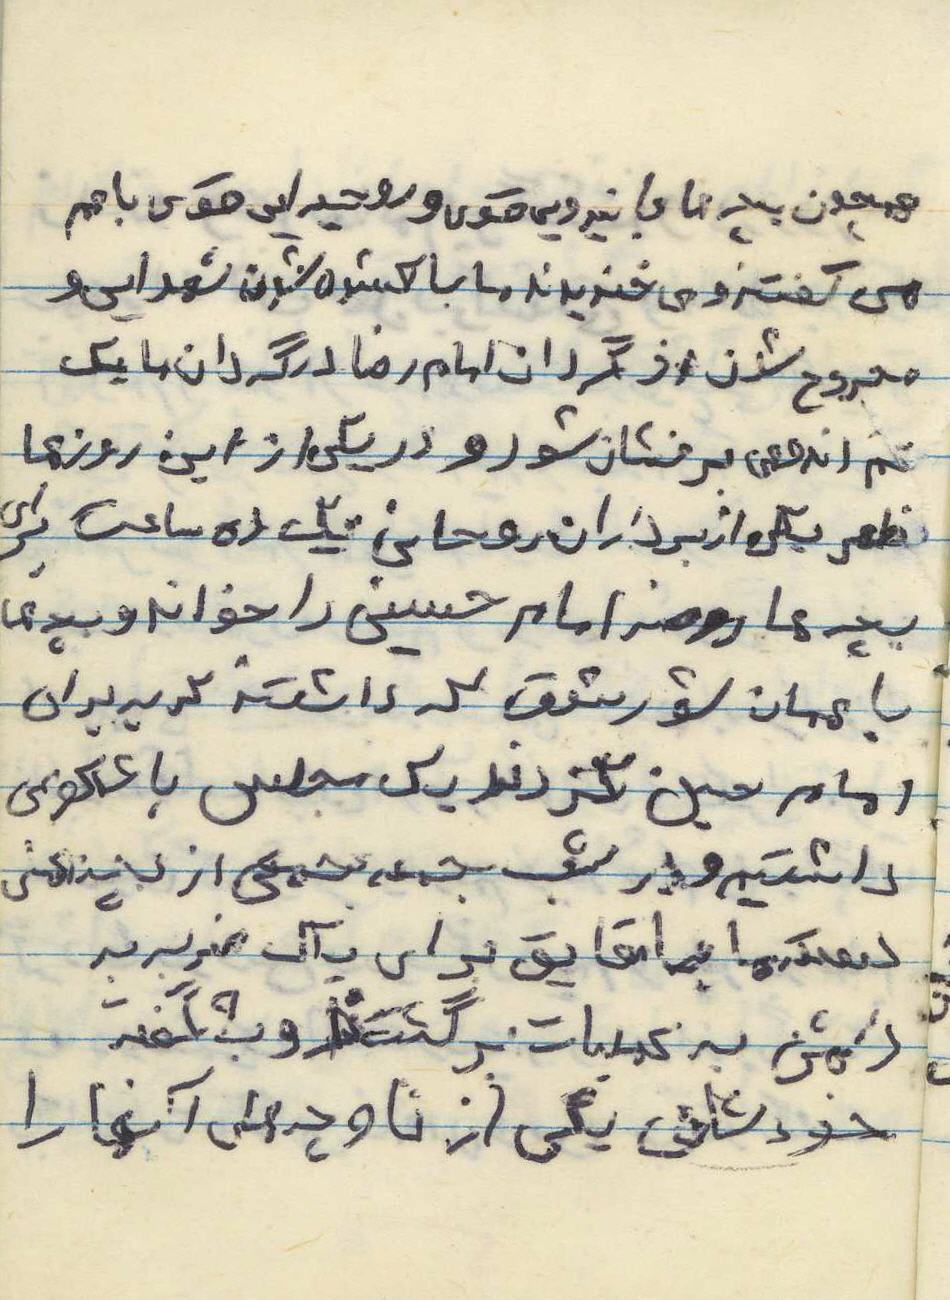 همچون بچه ها با نیرویی قوی و روحیه ایی قوی باهم
می گفتند و می خندیدند ما با کشته شدن شهدایی و
مجروح شدن از گردان امام رضا در گردان ما یک
غم اندوهی بر فشان شود و در یکی از این روزها
ظهر یکی از برادران روحانی یک ده ساعت برای
بچه ها روضه امام حسینی را خواند و بچه ها
با همان شور شوق که داشتند گریه برای
امام حسین کردند یک مجلس با شکوهی
داشتیم و در شب جمعه جمعی از
ما با قایق برای یک ضربه به
دشمن به عملیات بر گشتند و به گفته
خودشان یکی از ناوچه های آنها را